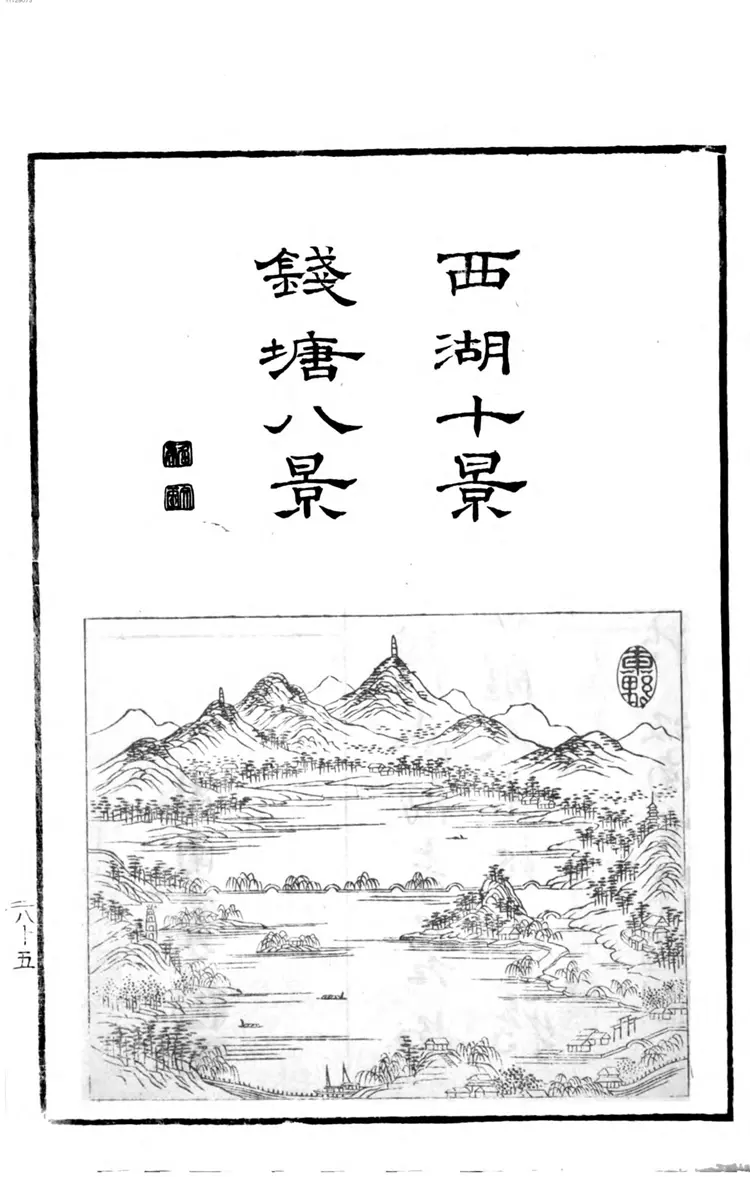 西湖十景
錢塘八景
一八ー五